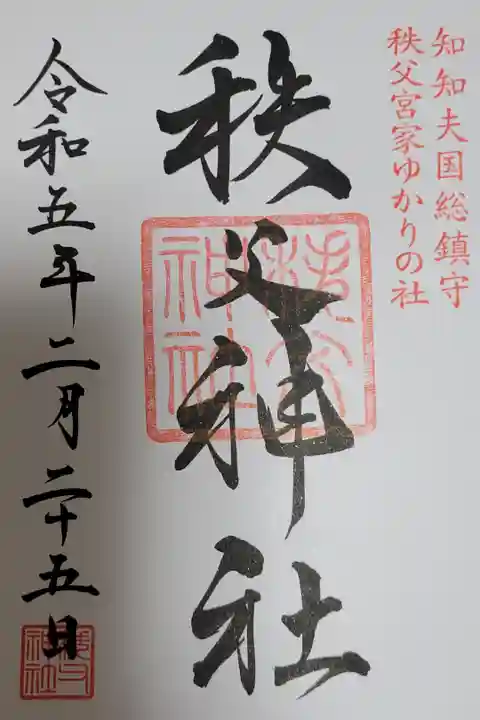 知知夫国総鎮守
秩父宮家ゆかりの社
秩父神社
秩父神社
令和五年二月二十五日
秩父神社